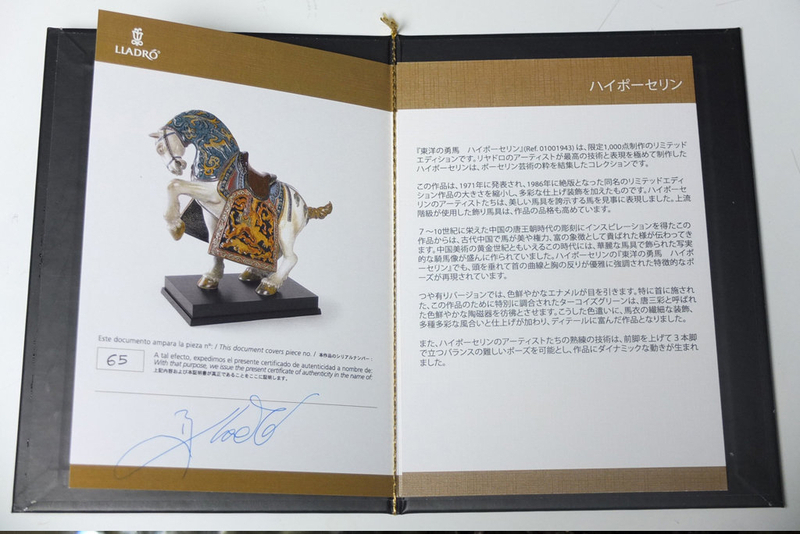 LLADRÓ
Este documento ampara la pieza nº: / This document covers piece no. / 本作品のシリアルナンバー:
65
A tal efecto, expedimos el presente certificado de autenticidad a nombre de:
With that purpose, we issue the present certificate of authenticity in the name of
上記内容および本証明書が真正であることをここに証明します。
ハイポーセリン
『東洋の勇馬　ハイポーセリン』(Ref. 01001943) は、限定1,000点制作のリミテッド
エディションです。リヤドロのアーティストが最高の技術と表現を極めて制作した
ハイポーセリンは、ポーセリン芸術の粋を結集したコレクションです。
この作品は、1971年に発表され、1986年に絶版となった同名のリミテッドエディ
ション作品の大きさを縮小し、多彩な仕上げ装飾を加えたものです。ハイポーセ
リンのアーティストたちは、美しい馬具を誇示する馬を見事に表現しました。上流
階級が使用した飾り馬具は、作品の品格も高めています。
７～10世紀に栄えた中国の唐王朝時代の彫刻にインスピレーションを得たこの
作品からは、古代中国で馬が美や権力、富の象徴として貴ばれた様が伝わってき
ます。中国美術の黄金世紀ともいえるこの時代には、華麗な馬具で飾られた写実
的な騎馬像が盛んに作られていました。ハイポーセリンの『東洋の勇馬　ハイポ
ーセリン』でも、頭を垂れて首の曲線と胸の反りが優雅に強調された特徴的なポ
ーズが再現されています。
つや有りバージョンでは、色鮮やかなエナメルが目を引きます。特に首に施され
た、この作品のために特別に調合されたターコイズグリーンは、唐三彩と呼ばれ
た色鮮やかな陶磁器を彷彿とさせます。こうした色遣いに、馬衣の繊細な装飾、
多種多彩な風合いと仕上げが加わり、ディテールに富んだ作品となりました。
また、ハイポーセリンのアーティストたちの熟練の技術は、前脚を上げて３本脚
で立つバランスの難しいポーズを可能とし、作品にダイナミックな動きが生まれ
ました。